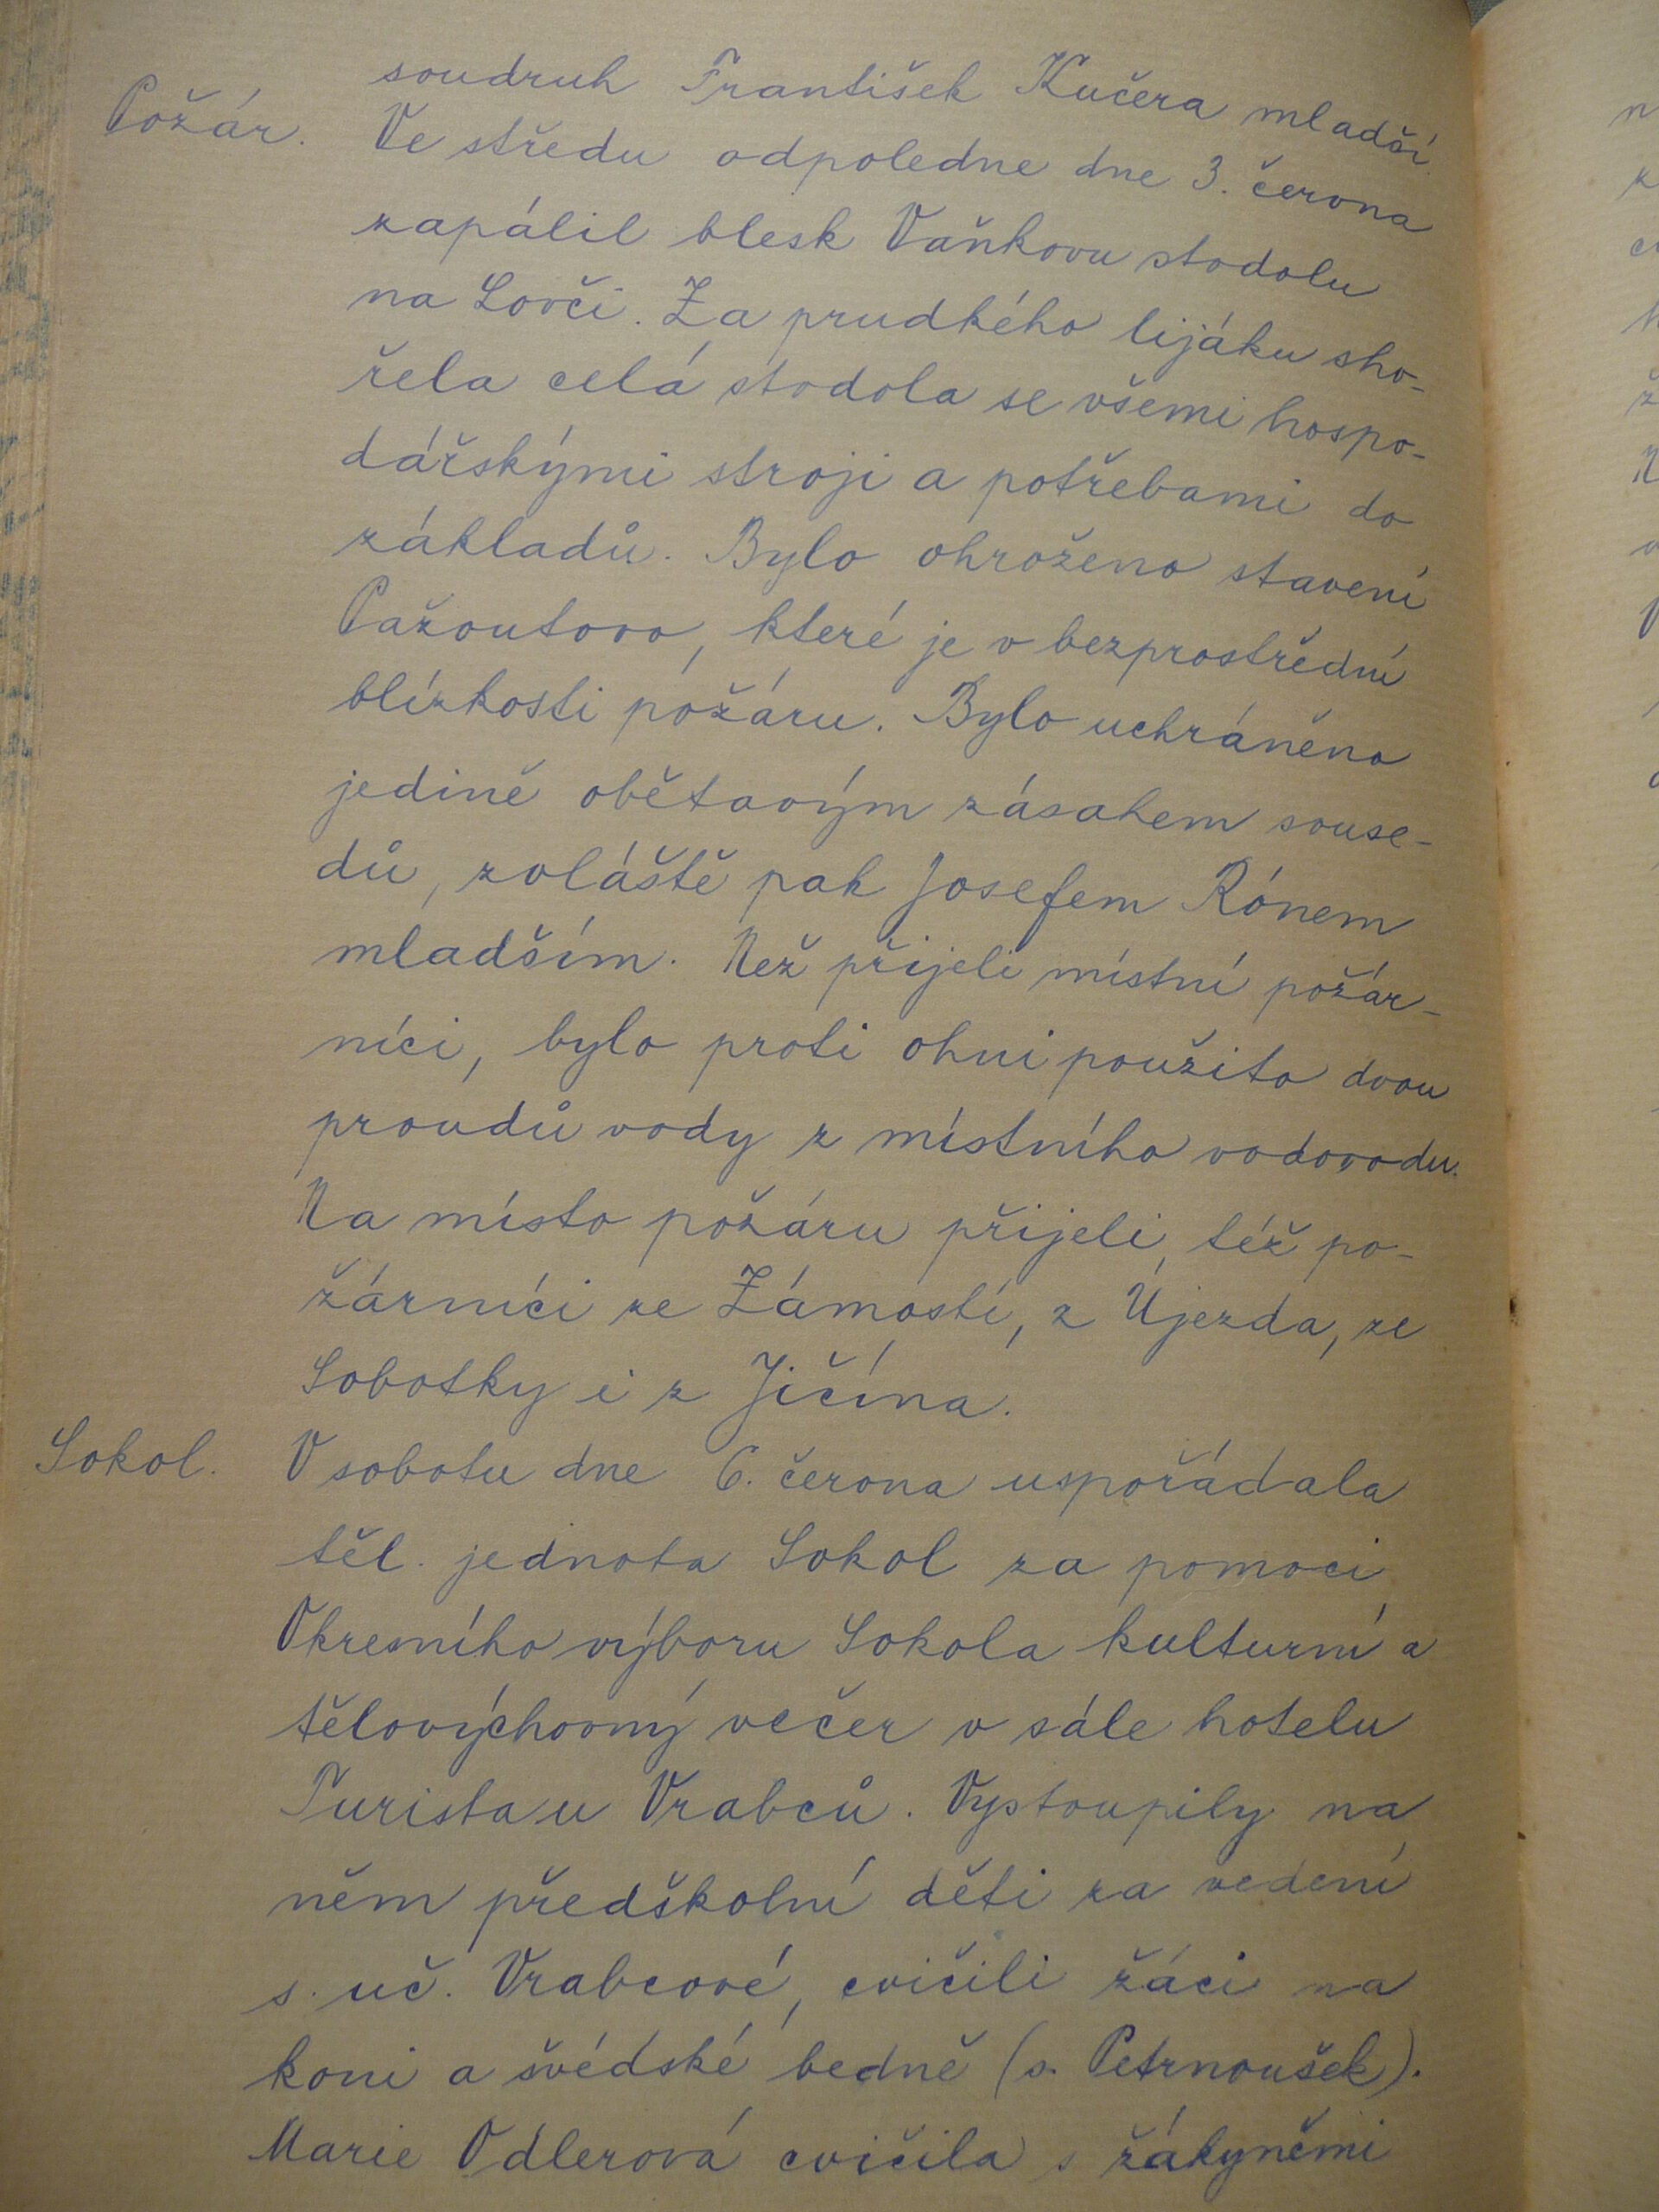 soudruh František Kučera mladší.
Požár. Ve středu odpoledne dne 3. června
zapálil blesk Vaňkovu stodolu
na Lovči. Za prudkého lijáku sho-
řela celá stodola se všemi hospo-
dářskými stroji a potřebami do
základů. Bylo ohroženo stavení
Pažoutovo, které je v bezprostřední
blízkosti požáru. Bylo uchráněno
jedině obětavým zásahem souse-
dů, zvláště pak Josefem Rónem
mladším. Než přijeli místní požár-
níci, bylo proti ohni použito dvou
proudů vody z místního vodovodu.
Na místo požáru přijeli též po-
žárníci ze Zámostí, z Újezda, ze
Sobotky i z Jičína.
Sokol. V sobotu dne 6. června uspořádala
těl. jednota Sokol za pomoci
Okresního výboru Sokola kulturní a
tělovýchovný večer v sále hotelu
Turista u Vrabců. Vystoupily na
něm předškolní děti za vedení
s. uč. Vrabcové, cvičili žáci na
koni a švédské bedně (s. Petrnoušek).
Marie Odlerová cvičila s žákyněmi